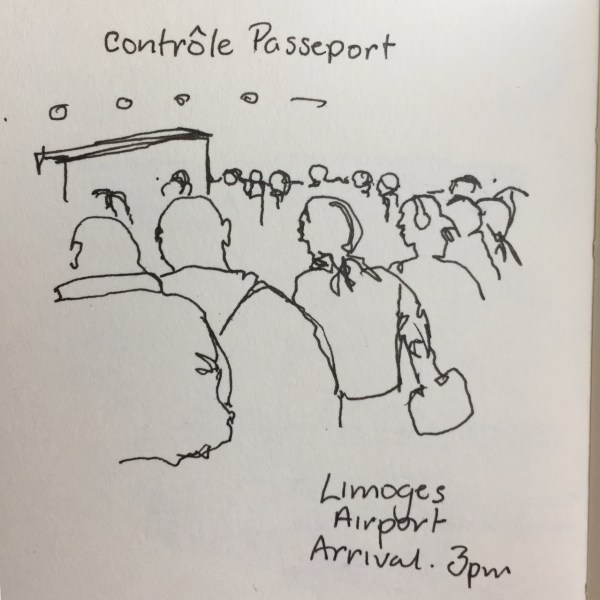 Contrôle Passeport
Limoges
Airport
Arrival. 3pm